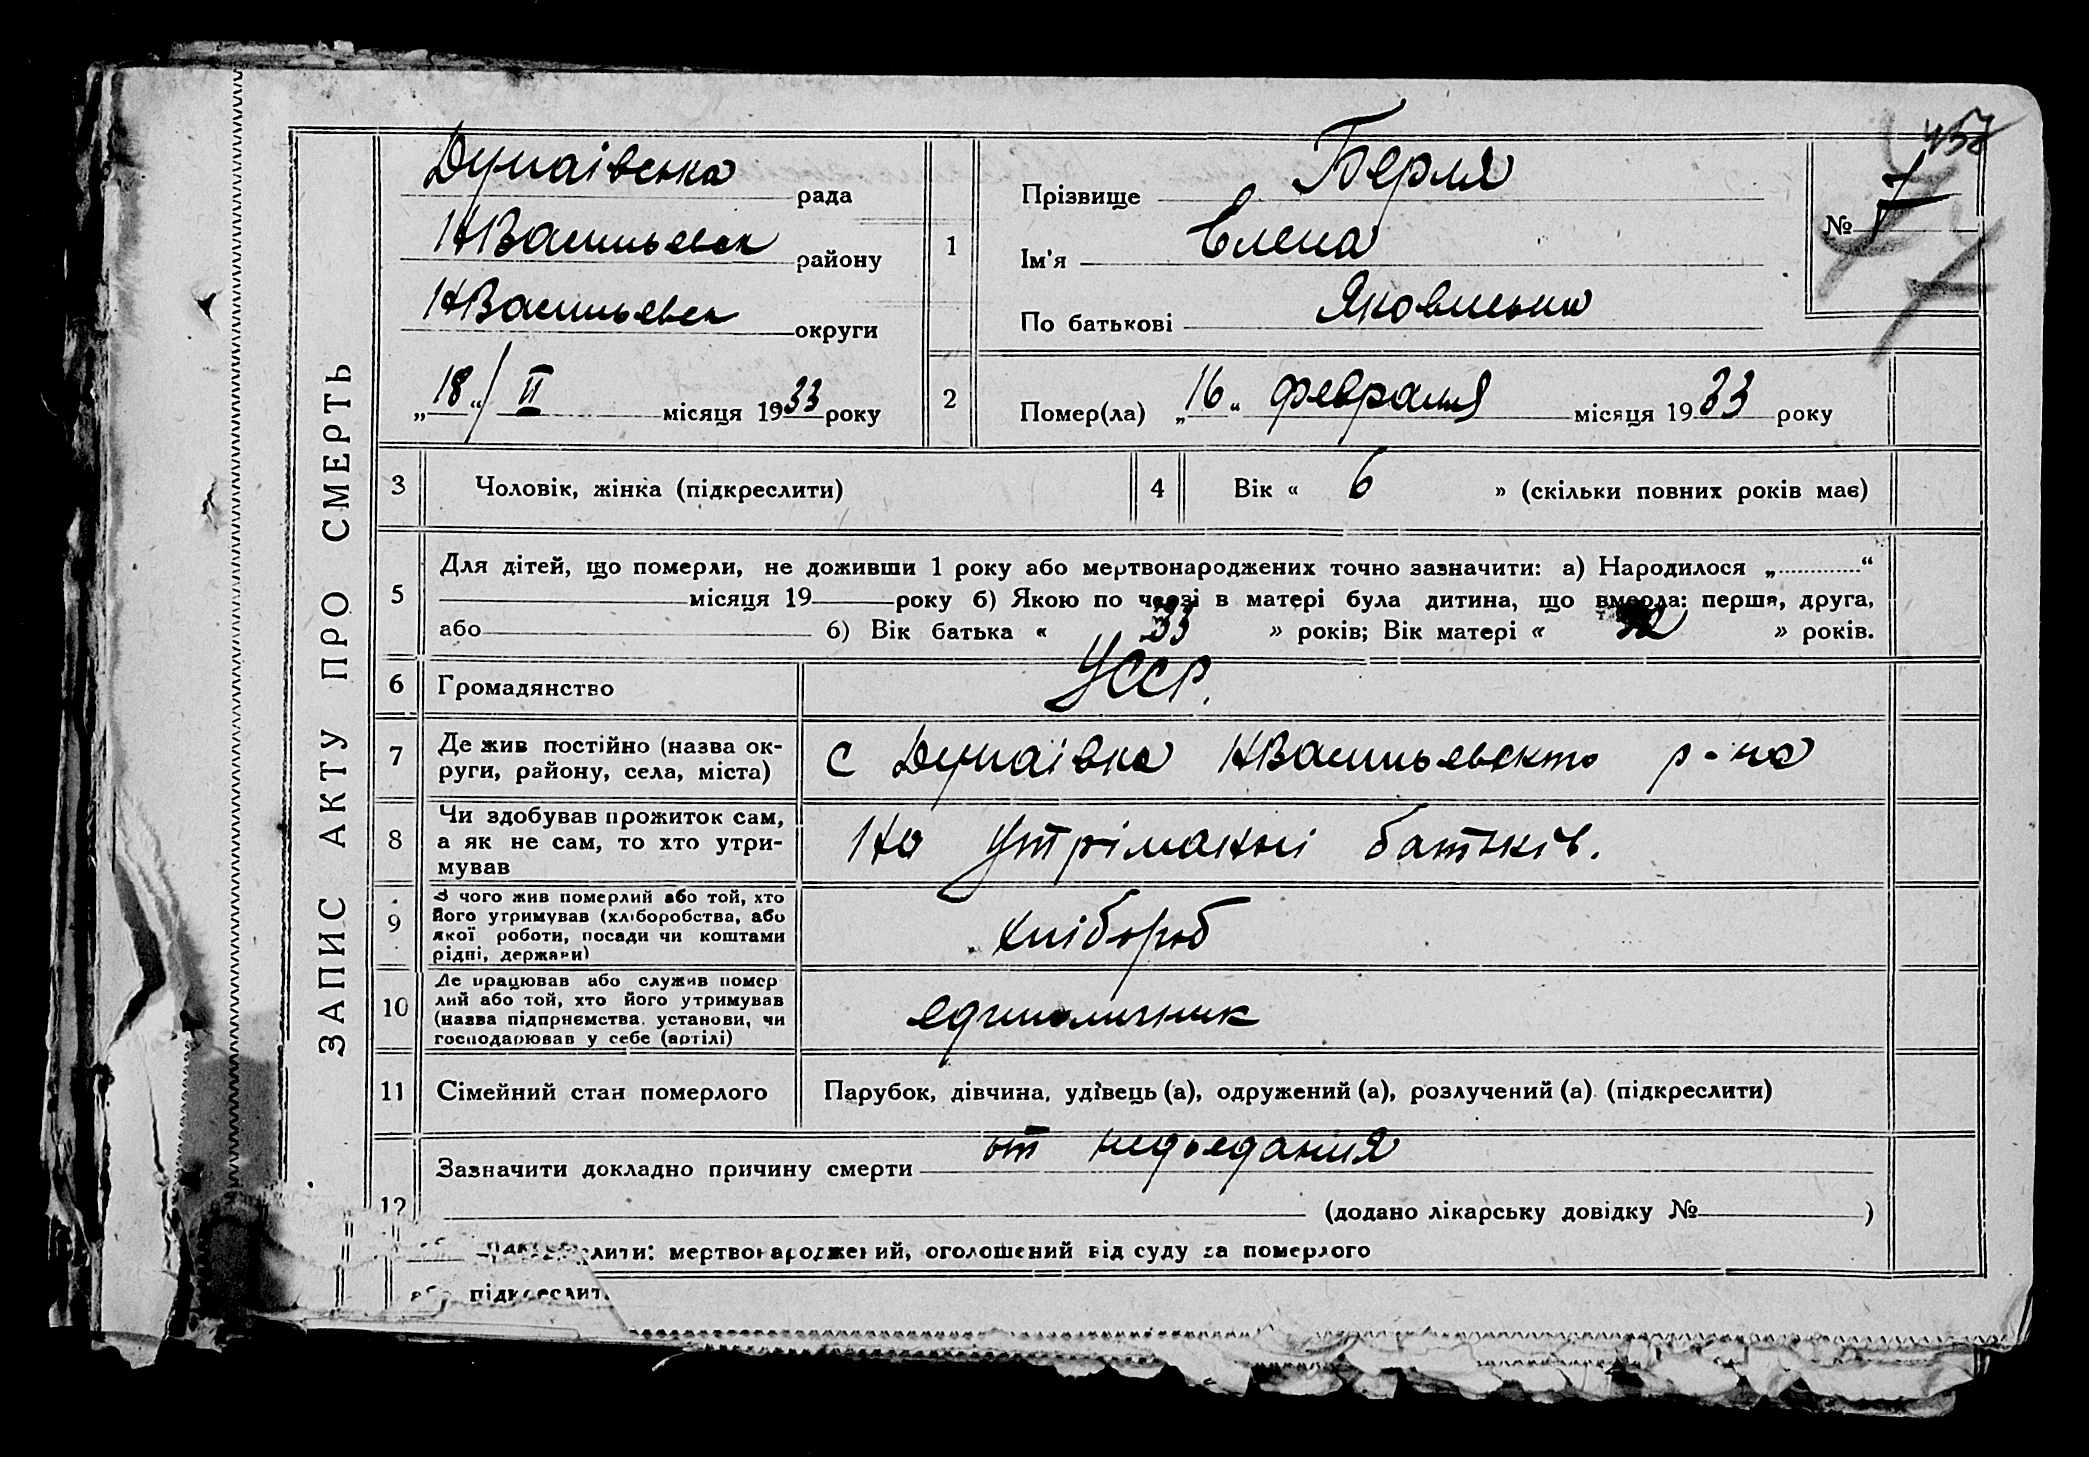 ЗАПИС АКТУ ПРО СМЕРТЬ
457
Дунаівська рада
НВасильевск району
НВасильевск округи
„18“/ II місяця 1933 року
1
Прізвище Берля
Ім'я Елена
По батькові Яковлевна
№ 7
2
Помер(ла) „16“ февраля місяця 1933 року
3 Чоловік, жінка (підкреслити)
4 Вік « 6 » (скільки повних років має)
5
Для дітей, що померли, не доживши 1 року або мертвонароджених точно зазначити: а) Народилося „ “
місяця 19 року б) Якою по черзі в матері була дитина, що вмерла: перша, друга,
або б) Вік батька « 33 » років; Вік матері « 32 » років.
6 Громадянство УССР.
7 Де жив постійно (назва ок-
руги, району, села, міста)
с Дунаівка НВасильевского р-на
8 Чи здобував прожиток сам,
а як не сам, то хто утри-
мував
На утріманні батьків.
9 З чого жив померлий або той, хто
його утримував (хліборобства, або
якої роботи, посади чи коштами
рідні, держави)
хлібороб
10 Де працював або служив помер
лий або той, хто його утримував
(назва підприємства, установи, чи
господарював у себе (артілі)
единоличник
11 Сімейний стан померлого
Парубок, дівчина, удівець (а), одружений (а), розлучений (а) (підкреслити)
12 Зазначити докладно причину смерти от недоедания
(додано лікарську довідку № )
мертвонароджений, оголошений від суду за померлого